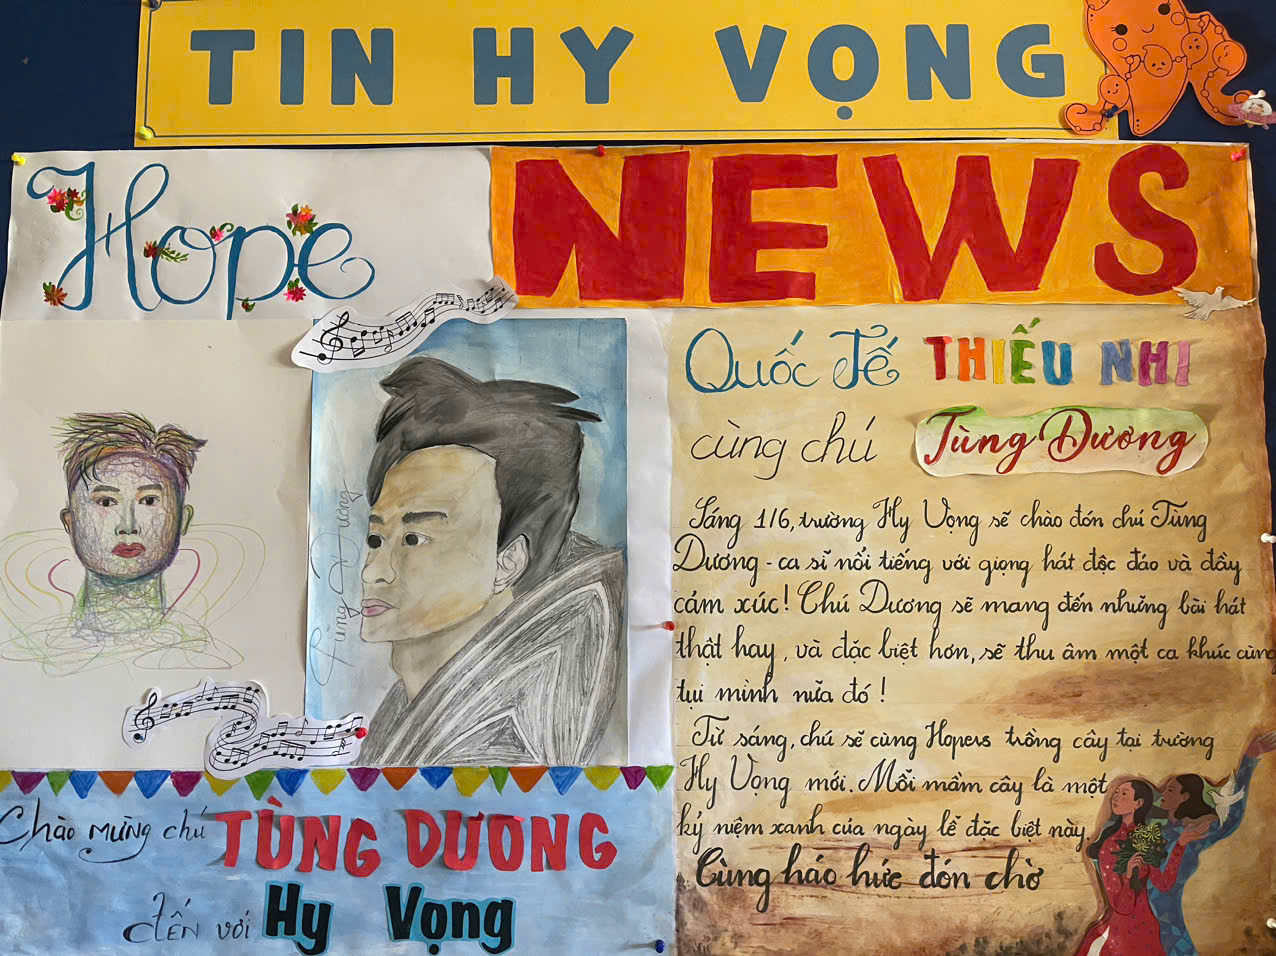 TIN HY VỌNG
Hope
NEWS
Tùng Dương
Chào mừng chú TÙNG DƯƠNG
đến với Hy Vọng
Quốc Tế THIẾU NHI
cùng chú Tùng Dương
Sáng 1/6, trường Hy Vọng sẽ chào đón chú Tùng
Dương - ca sĩ nổi tiếng với giọng hát độc đáo và đầy
cảm xúc! Chú Dương sẽ mang đến những bài hát
thật hay, và đặc biệt hơn, sẽ thu âm một ca khúc cùng
tụi mình nữa đó!
Từ sáng, chú sẽ cùng Hopers trồng cây tại trường
Hy Vọng mới. Mỗi mầm cây là một
ký niệm xanh của ngày lễ đặc biệt này.
Cùng háo hức đón chờ